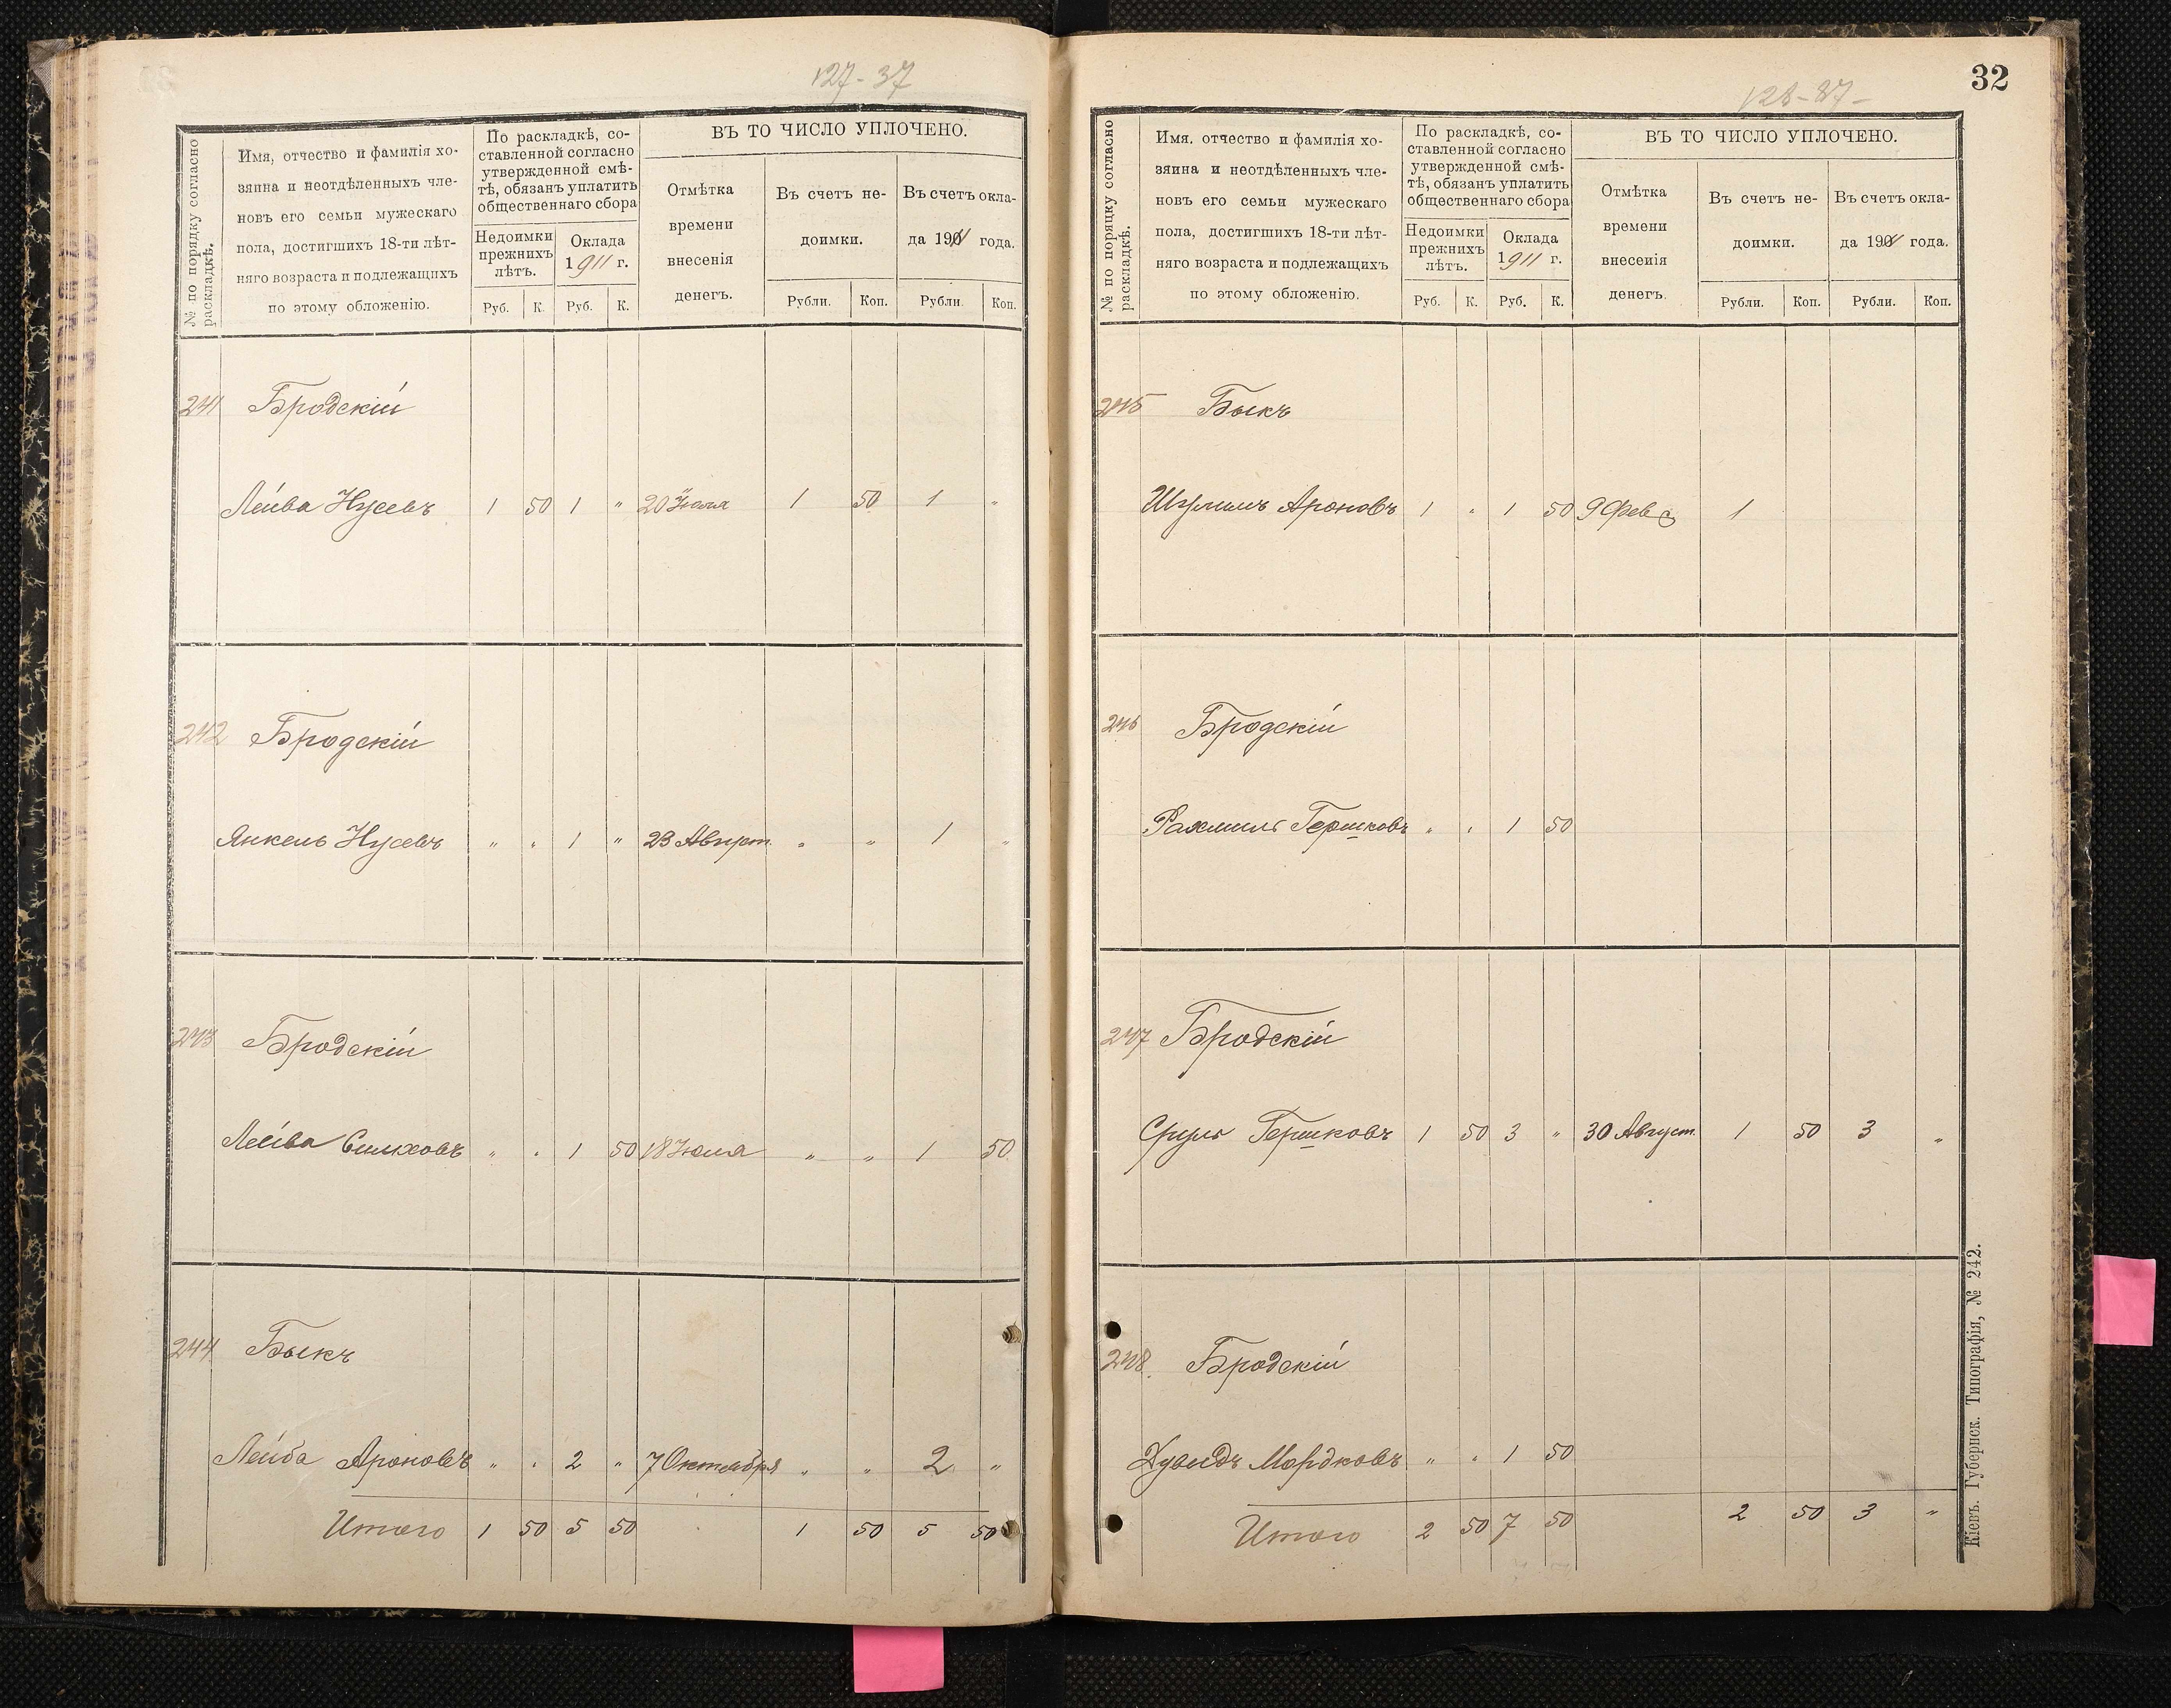 127-37
№ по порядку согласно раскладкѣ.
Имя, отчество и фамилія хо-
зяина и неотдѣленныхъ чле-
новъ его семьи мужескаго
пола, достигшихъ 18-ти лѣт-
няго возраста и подлежащихъ
по этому обложенію.
По раскладкѣ, со-
ставленной согласно
утвержденной смѣ-
тѣ, обязанъ уплатить
общественнаго сбора
Недоимки
прежнихъ
лѣтъ.
Оклада
1911 г.
Руб. К. Руб. К.
ВЪ ТО ЧИСЛО УПЛОЧЕНО.
Отмѣтка
времени
внесенія
денегъ.
Въ счетъ не-
доимки.
Въ счетъ окла-
да 1911 года.
Рубли. Коп. Рубли. Коп.
241 Бродскій
Лейба Нусевъ 1 50 1 " 20 Іюля 1 50 1 "
242 Бродскій
Янкель Нусевъ " " 1 " 23 Август. " " 1 "
243 Бродскій
Лейба Симховъ " " 1 50 18 Іюля " " 1 50
244 Быкъ
Лейба Ароновъ " " 2 " 7 Октября " " 2 "
Итого 1 50 5 50 1 50 5 50
32
128-87-
№ по порядку согласно раскладкѣ.
Имя, отчество и фамилія хо-
зяина и неотдѣленныхъ чле-
новъ его семьи мужескаго
пола, достигшихъ 18-ти лѣт-
няго возраста и подлежащихъ
по этому обложенію.
По раскладкѣ, со-
ставленной согласно
утвержденной смѣ-
тѣ, обязанъ уплатить
общественнаго сбора
Недоимки
прежнихъ
лѣтъ.
Оклада
1911 г.
Руб. К. Руб. К.
ВЪ ТО ЧИСЛО УПЛОЧЕНО.
Отмѣтка
времени
внесенія
денегъ.
Въ счетъ не-
доимки.
Въ счетъ окла-
да 1911 года.
Рубли. Коп. Рубли. Коп.
245 Быкъ
Шулимъ Ароновъ 1 " 1 50 9 Фев 1
246 Бродскій
Рахмиль Гершковъ " " 1 50
247 Бродскій
Сруль Гершковъ 1 50 3 " 30 Август. 1 50 3 "
248. Бродскій
Дувидъ Мордковъ " " 1 50
Итого 2 50 7 50 2 50 3 "
Кіевъ. Губернск. Типографія, № 242.